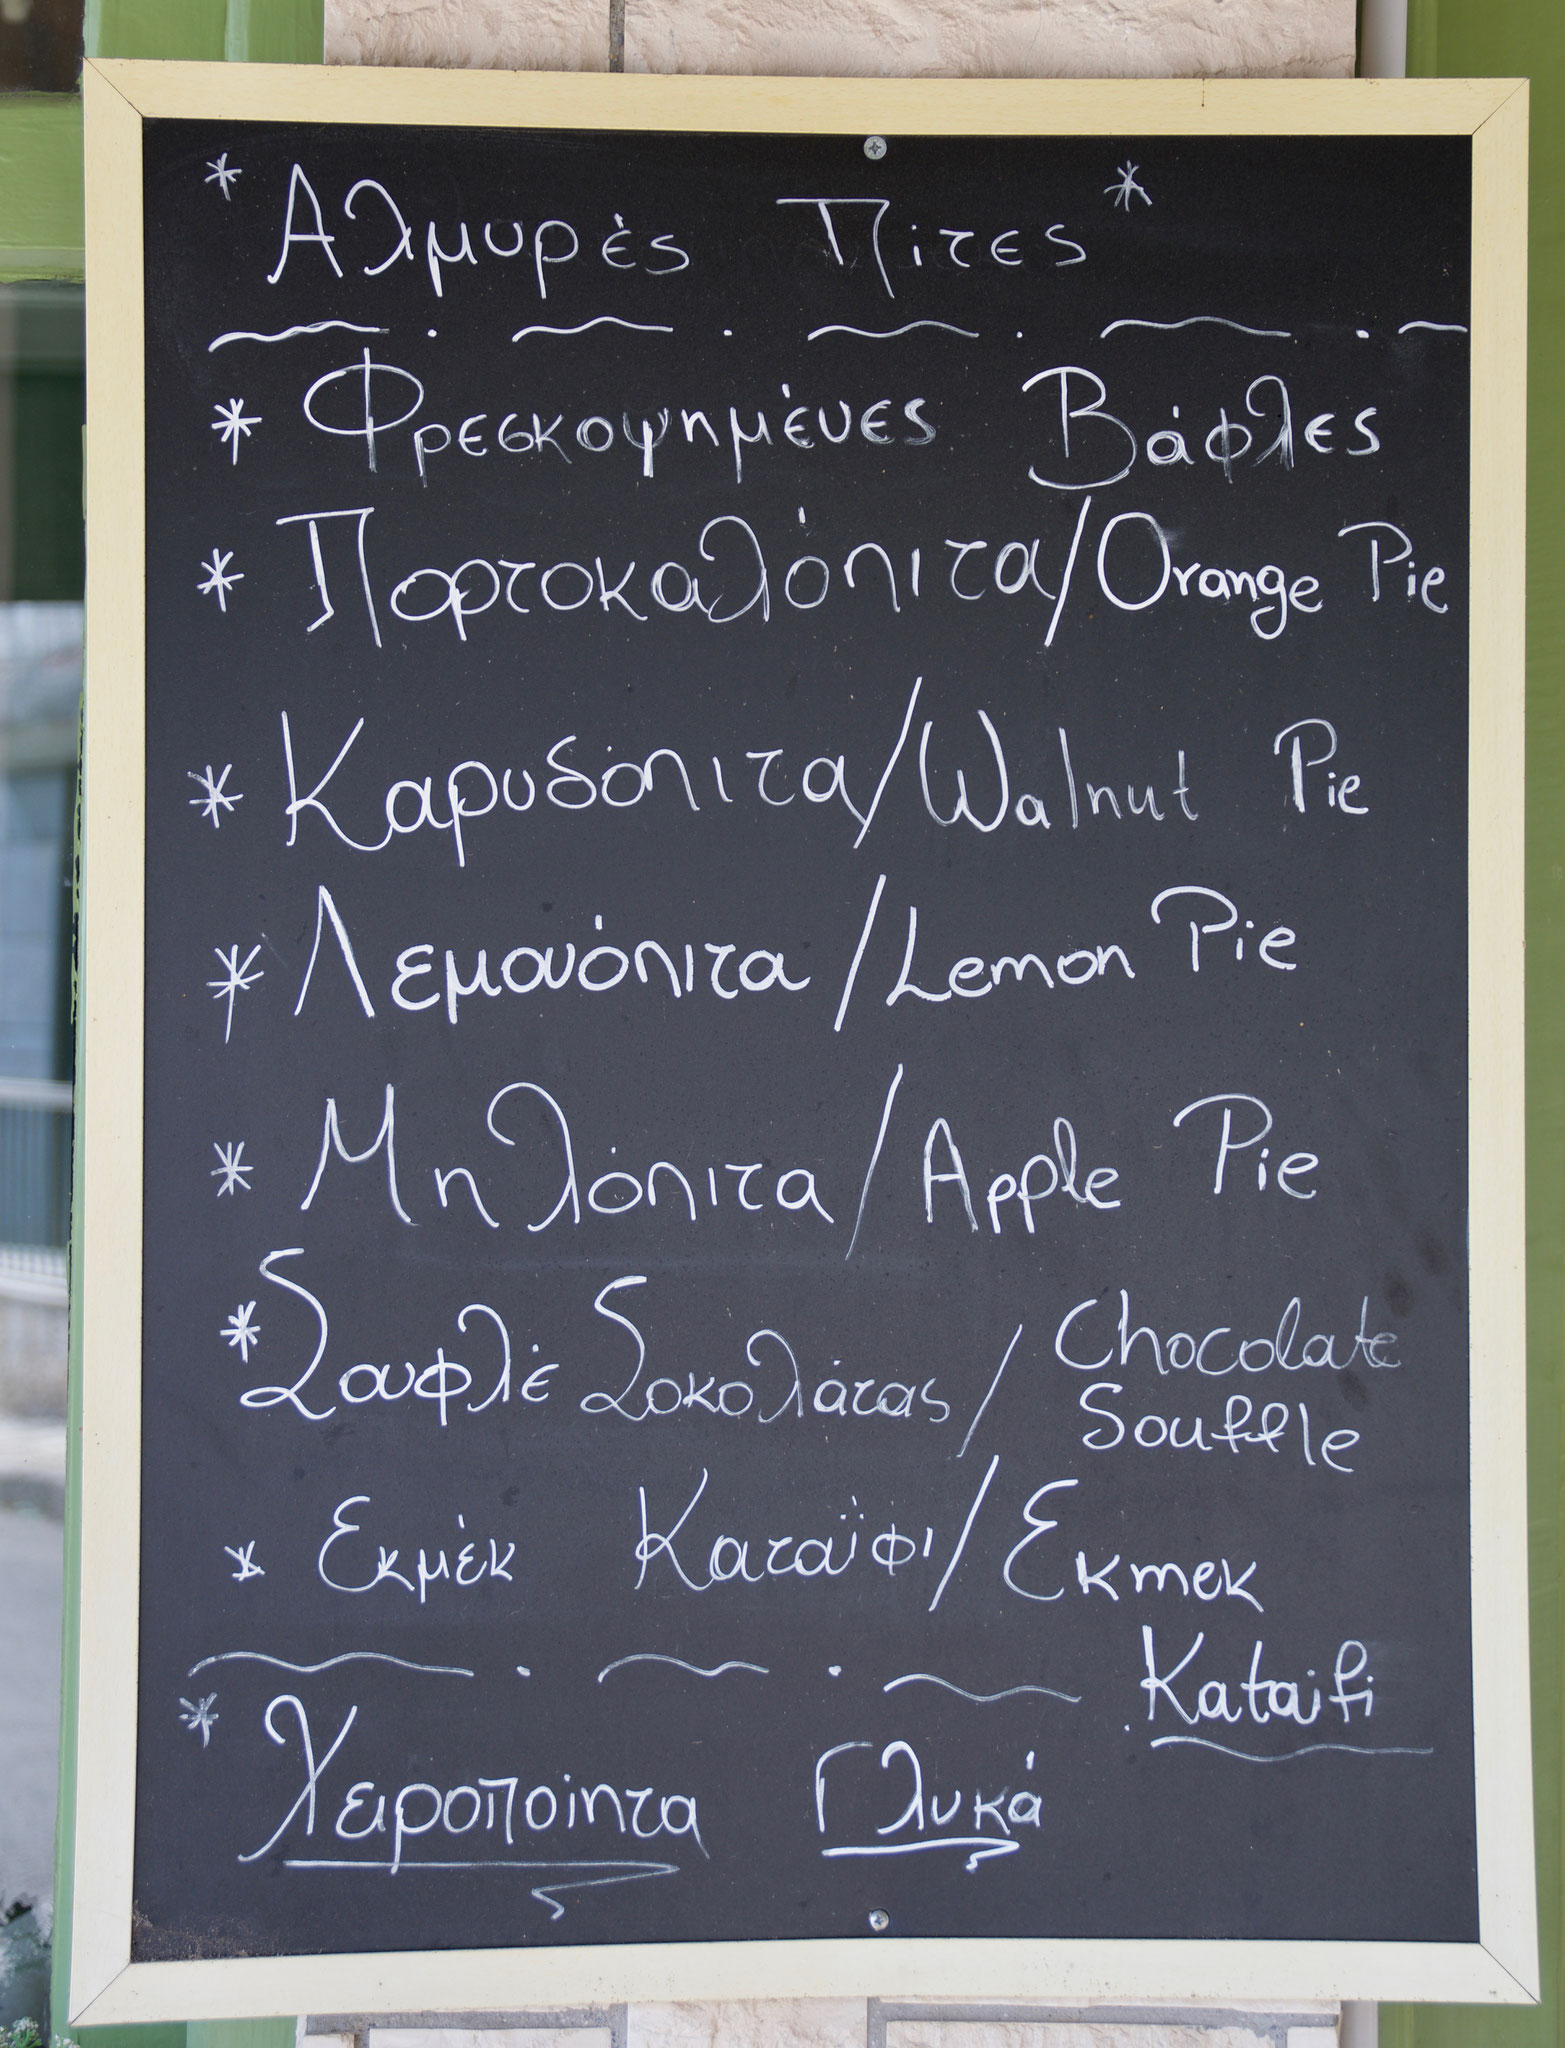 * Αλμυρές Πιτες *
* Φρεσκοψημένες Βάφλες
* Πορτοκαλόπιτα/Orange Pie
* Καρυδόπιτα/Walnut Pie
* Λεμονόπιτα/Lemon Pie
* Μηλόπιτα/Apple Pie
* Σουφλέ Σοκολάτας/Chocolate
Souffle
* Εκμέκ Καταϊφι/Εkmek
Kataifi
* Χειροποίητα Γλυκά